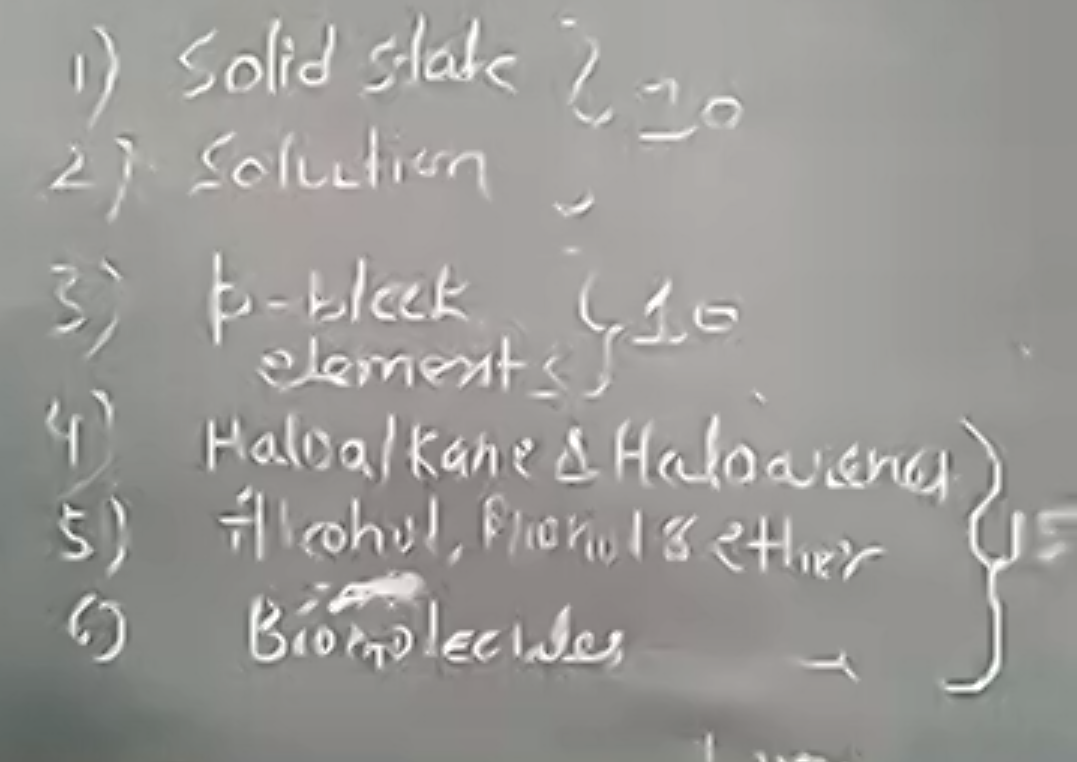 1) Solid state } 10
2) Solution
3) p-block } 10
elements
4) Haloalkane & Haloarenes } 15
5) Alcohol, Phenol & ether
6) Biomolecules